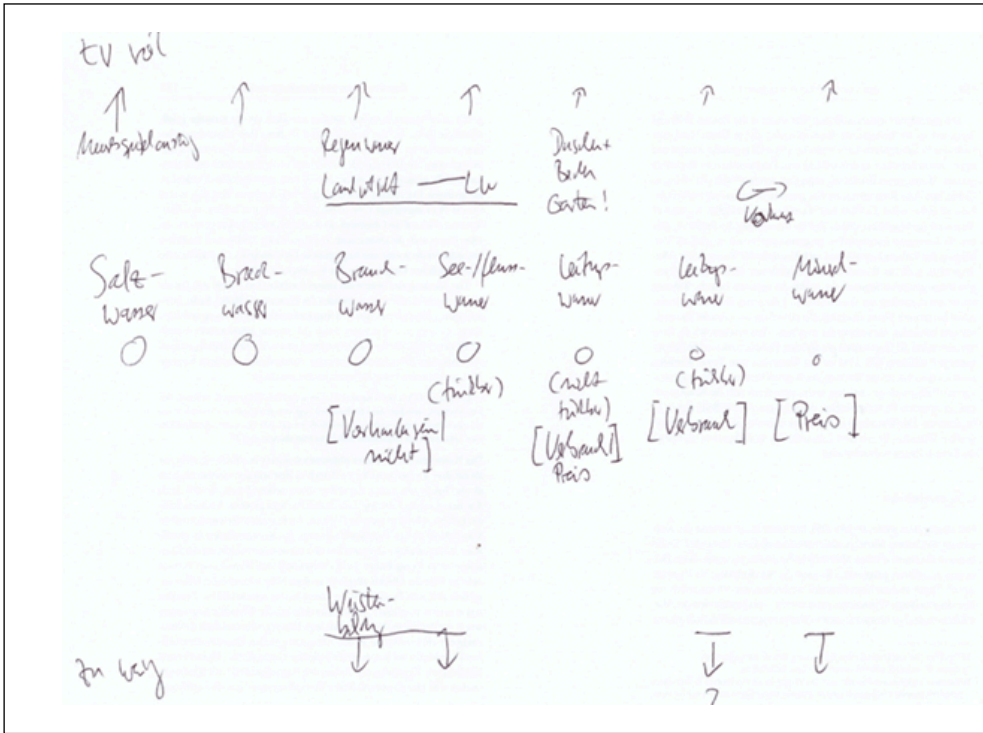 zu viel
Regenwasser
Landwirtsch. — LW
Duschen +
Baden
Garten!
Verlust
Salz-
wasser
Brack-
wasser
Brauch-
wasser
See-/Fluss-
wasser
Leitungs-
wasser
Leitungs-
wasser
Mineral-
wasser
(trinkbar)
(nicht
trinkbar)
(trinkbar)
[Vorhandensein/
nicht]
[Verbrauch/]
Preis
[Verbrauch]
[Preis]
Wüsten-
bildung
zu wenig
?